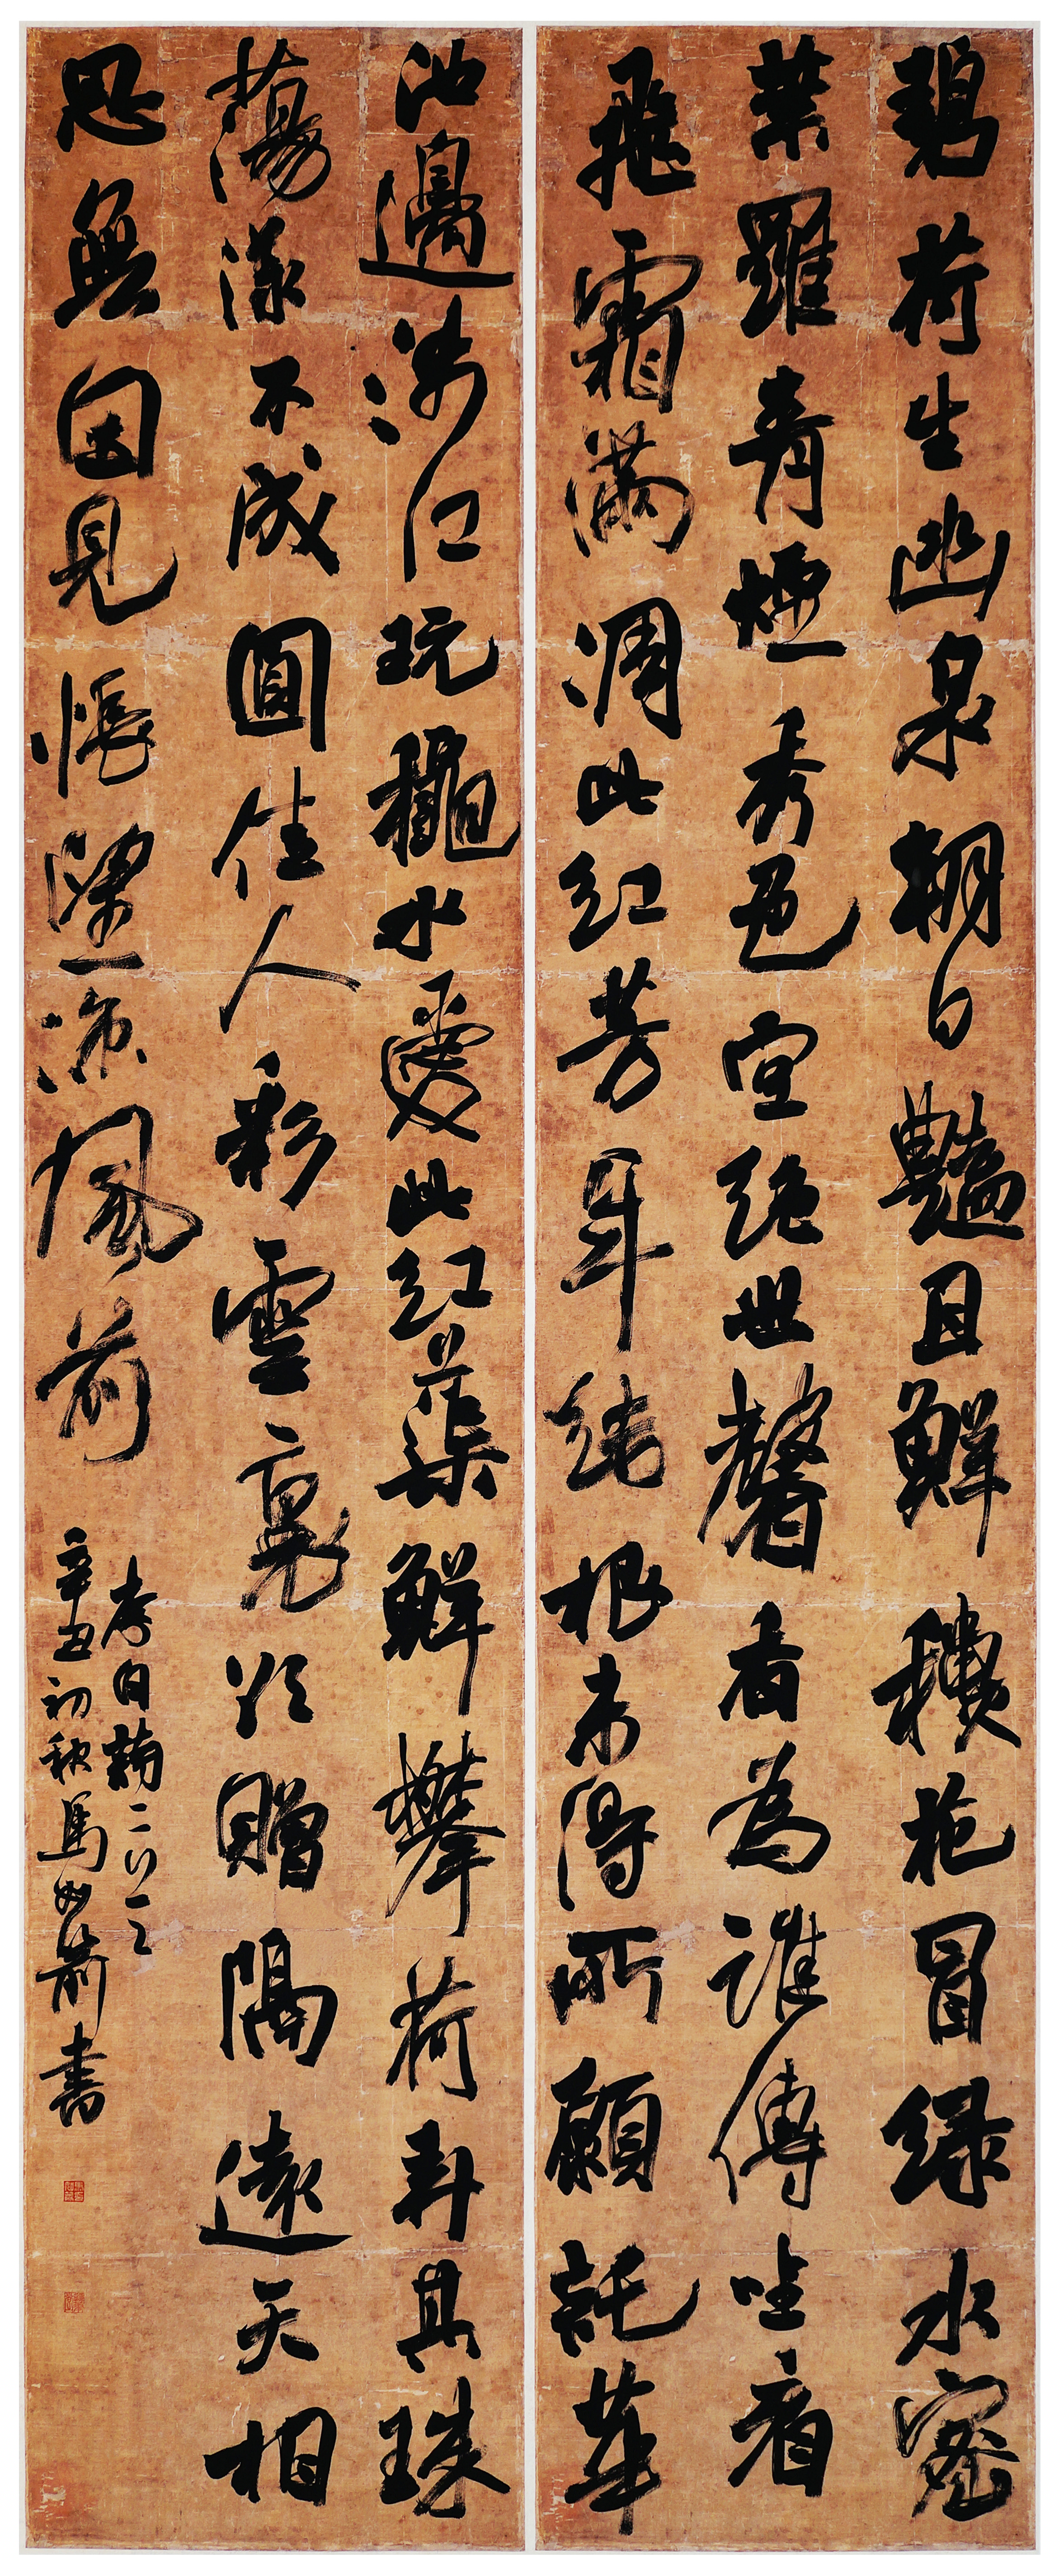 碧荷生幽泉朝日豔且鮮穐花冒绿水密
葉羅青煙秀色空絕世馨香為誰傳坐看
飛霜滿凋此紅芳年結根未得所願託華
池邊涉江玩龝水愛此紅蕖鮮攀荷弄其珠
蕩漾不成圓佳人彩雲裏欲贈隔遠天相
思無因見悵望涼風前
李白二
辛丑初秋馬書